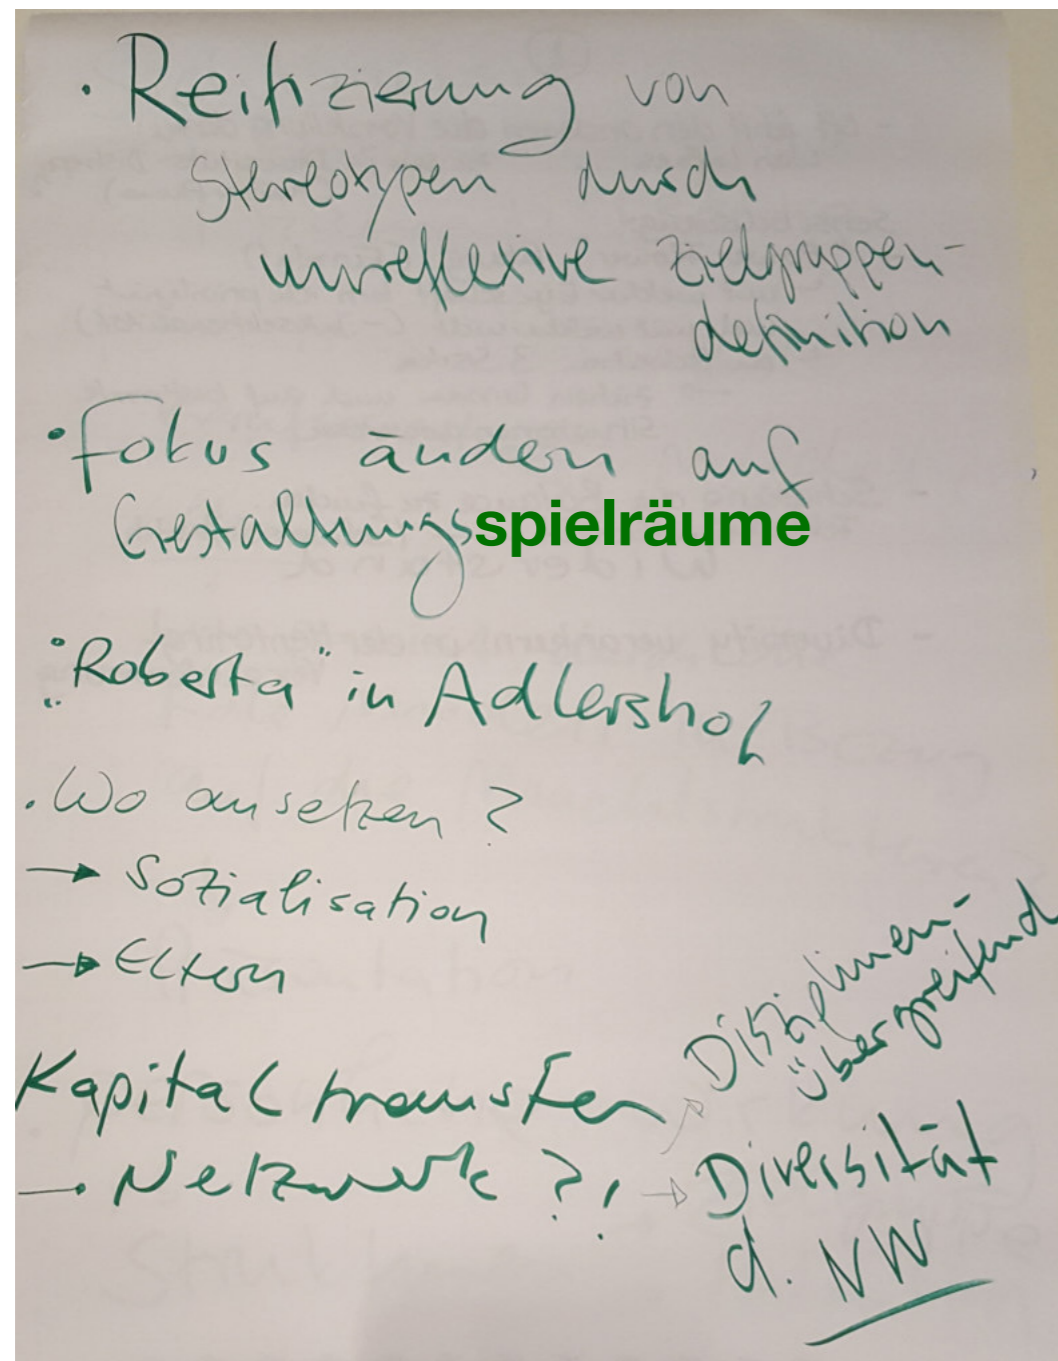 • Reifizierung von
Stereotypen durch
unreflexive Zielgruppen-
definition
• Fokus ändern auf
Gestaltungsspielräume
• „Roberta" in Adlershof
• Wo ansetzen?
→ Sozialisation
→ Eltern
Kapitaltransfer
→ Netzwerk?!
→ Disziplinen-
übergreifend
→ Diversität
d. NW